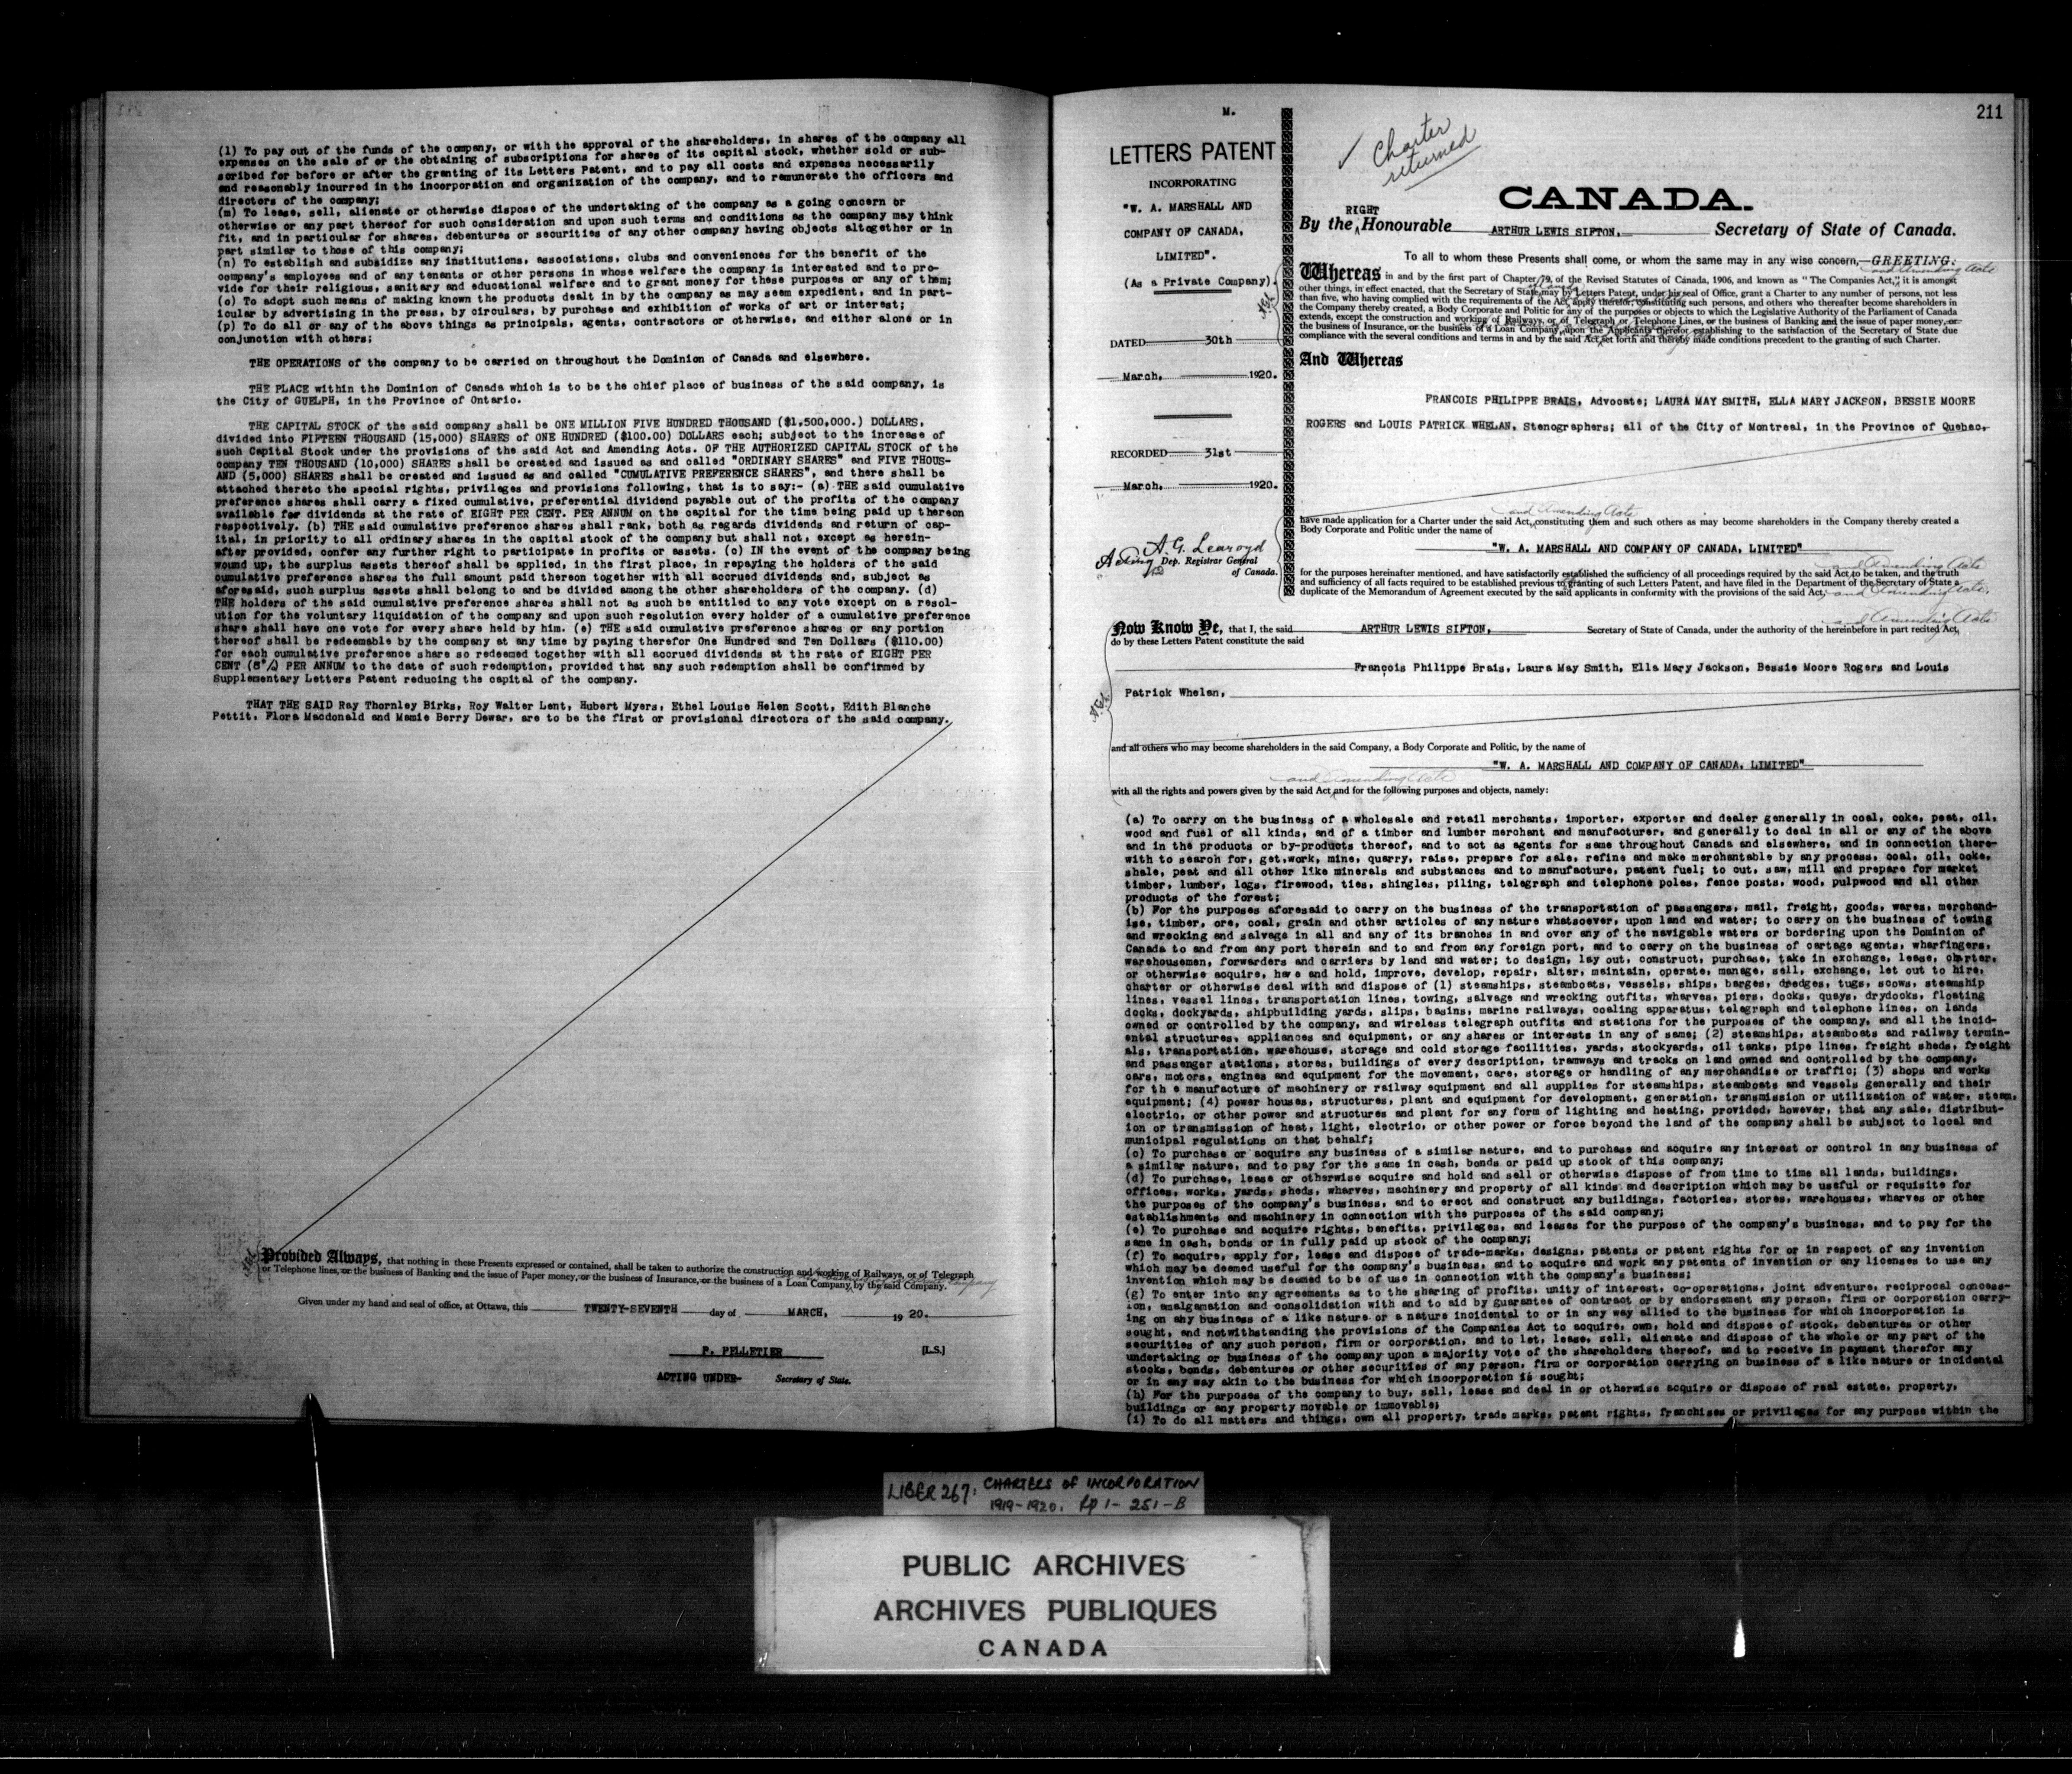 (l) To pay out of the funds of the company, or with the approval of the shareholders, in shares of the company all
expenses on the sale of or the obtaining of subscriptions for shares of its capital stock, whether sold or sub-
scribed for before or after the granting of its Letters Patent, and to pay all costs and expenses necessarily
and reasonably incurred in the incorporation and organization of the company, and to remunerate the officers and
directors of the company;
(m) To lease, sell, alienate or otherwise dispose of the undertaking of the company as a going concern or
otherwise or any part thereof for such consideration and upon such terms and conditions as the company may think
fit, and in particular for shares, debentures or securities of any other company having objects altogether or in
part similar to those of this company;
(n) To establish and subsidize any institutions, associations, clubs and conveniences for the benefit of the
company's employees and of any tenants or other persons in whose welfare the company is interested and to pro-
vide for their religious, sanitary and educational welfare and to grant money for these purposes or any of them;
(o) To adopt such means of making known the products dealt in by the company as may seem expedient, and in part-
icular by advertising in the press, by circulars, by purchase and exhibition of works of art or interest;
(p) To do all or any of the above things as principals, agents, contractors or otherwise, and either alone or in
conjunction with others;
THE OPERATIONS of the company to be carried on throughout the Dominion of Canada and elsewhere.
THE PLACE within the Dominion of Canada which is to be the chief place of business of the said company, is
the City of GUELPH, in the Province of Ontario.
THE CAPITAL STOCK of the said company shall be ONE MILLION FIVE HUNDRED THOUSAND ($1,500,000.) DOLLARS,
divided into FIFTEEN THOUSAND (15,000) SHARES of ONE HUNDRED ($100.00) DOLLARS each; subject to the increase of
such Capital Stock under the provisions of the said Act and Amending Acts. OF THE AUTHORIZED CAPITAL STOCK of the
company TEN THOUSAND (10,000) SHARES shall be created and issued as and called "ORDINARY SHARES" and FIVE THOUS-
AND (5,000) SHARES shall be created and issued as and called "CUMULATIVE PREFERENCE SHARES", and there shall be
attached thereto the special rights, privileges and provisions following, that is to say:- (a) THE said cumulative
preference shares shall carry a fixed cumulative, preferential dividend payable out of the profits of the company
available for dividends at the rate of EIGHT PER CENT. PER ANNUM on the capital for the time being paid up thereon
respectively. (b) THE said cumulative preference shares shall rank, both as regards dividends and return of cap-
ital, in priority to all ordinary shares in the capital stock of the company but shall not, except as herein-
after provided, confer any further right to participate in profits or assets. (c) IN the event of the company being
wound up, the surplus assets thereof shall be applied, in the first place, in repaying the holders of the said
cumulative preference shares the full amount paid thereon together with all accrued dividends and, subject as
aforesaid, such surplus assets shall belong to and be divided among the other shareholders of the company. (d)
THE holders of the said cumulative preference shares shall not as such be entitled to any vote except on a resol-
ution for the voluntary liquidation of the company and upon such resolution every holder of a cumulative preference
share shall have one vote for every share held by him. (e) THE said cumulative preference shares or any portion
thereof shall be redeemable by the company at any time by paying therefor One Hundred and Ten Dollars ($110.00)
for each cumulative preference share so redeemed together with all accrued dividends at the rate of EIGHT PER
CENT (8%) PER ANNUM to the date of such redemption, provided that any such redemption shall be confirmed by
Supplementary Letters Patent reducing the capital of the company.
THAT THE SAID Ray Thornley Birks, Roy Walter Lent, Hubert Myers, Ethel Louise Helen Scott, Edith Blanche
Pettit, Flora Macdonald and Mamie Berry Dewar, are to be the first or provisional directors of the said company.
Provided Always, that nothing in these Presents expressed or contained, shall be taken to authorize the construction and working of Railways, or of Telegraph
or Telephone lines, or the business of Banking and the issue of Paper money, or the business of Insurance, or the business of a Loan Company, by the said Company.
Given under my hand and seal of office, at Ottawa, this TWENTY-SEVENTH day of MARCH, 1920.
P. PELLETIER [L.S.]
ACTING UNDER- Secretary of State.
211
M.
LETTERS PATENT
INCORPORATING
"W. A. MARSHALL AND
COMPANY OF CANADA,
LIMITED".
(As a Private Company).
DATED 30th
March, 1920.
RECORDED 31st
March, 1920.
A. G. Learoyd
Acting Dep. Registrar General
of Canada.
✓ Charter
returned
CANADA.
RIGHT
By the Honourable ARTHUR LEWIS SIFTON, Secretary of State of Canada.
To all to whom these Presents shall come, or whom the same may in any wise concern,—GREETING:
and Amending Acts
Whereas in and by the first part of Chapter 79, of the Revised Statutes of Canada, 1906, and known as "The Companies Act," it is amongst
other things, in effect enacted, that the Secretary of State may by Letters Patent, under his seal of Office, grant a Charter to any number of persons, not less
than five, who having complied with the requirements of the Act, apply therefor, constituting such persons, and others who thereafter become shareholders in
the Company thereby created, a Body Corporate and Politic for any of the purposes or objects to which the Legislative Authority of the Parliament of Canada
extends, except the construction and working of Railways, or of Telegraph or Telephone Lines, or the business of Banking and the issue of paper money, or
the business of Insurance, or the business of a Loan Company, upon the Applicants therefor establishing to the satisfaction of the Secretary of State due
compliance with the several conditions and terms in and by the said Act, set forth and thereby made conditions precedent to the granting of such Charter.
And Whereas
FRANCOIS PHILIPPE BRAIS, Advocate; LAURA MAY SMITH, ELLA MARY JACKSON, BESSIE MOORE
ROGERS and LOUIS PATRICK WHELAN, Stenographers; all of the City of Montreal, in the Province of Quebec,
and Amending Acts
have made application for a Charter under the said Act, constituting them and such others as may become shareholders in the Company thereby created a
Body Corporate and Politic under the name of
"W. A. MARSHALL AND COMPANY OF CANADA, LIMITED"
and Amending Acts
for the purposes hereinafter mentioned, and have satisfactorily established the sufficiency of all proceedings required by the said Act, to be taken, and the truth
and sufficiency of all facts required to be established previous to granting of such Letters Patent, and have filed in the Department of the Secretary of State a
duplicate of the Memorandum of Agreement executed by the said applicants in conformity with the provisions of the said Act, and Amending Acts.
and Amending Acts
Now Know Ye, that I, the said ARTHUR LEWIS SIFTON, Secretary of State of Canada, under the authority of the hereinbefore in part recited Act,
do by these Letters Patent constitute the said
François Philippe Brais, Laura May Smith, Ella Mary Jackson, Bessie Moore Rogers and Louis
Patrick Whelan,
and all others who may become shareholders in the said Company, a Body Corporate and Politic, by the name of
"W. A. MARSHALL AND COMPANY OF CANADA, LIMITED"
and Amending Acts
with all the rights and powers given by the said Act and for the following purposes and objects, namely:
(a) To carry on the business of a wholesale and retail merchants, importer, exporter and dealer generally in coal, coke, peat, oil,
wood and fuel of all kinds, and of a timber and lumber merchant and manufacturer, and generally to deal in all or any of the above
and in the products or by-products thereof, and to act as agents for same throughout Canada and elsewhere, and in connection there-
with to search for, get,work, mine, quarry, raise, prepare for sale, refine and make merchantable by any process, coal, oil, coke,
shale, peat and all other like minerals and substances and to manufacture, patent fuel; to cut, saw, mill and prepare for market
timber, lumber, logs, firewood, ties, shingles, piling, telegraph and telephone poles, fence posts, wood, pulpwood and all other
products of the forest;
(b) For the purposes aforesaid to carry on the business of the transportation of passengers, mail, freight, goods, wares, merchand-
ise, timber, ore, coal, grain and other articles of any nature whatsoever, upon land and water; to carry on the business of towing
and wrecking and salvage in all and any of its branches in and over any of the navigable waters or bordering upon the Dominion of
Canada to and from any port therein and to and from any foreign port, and to carry on the business of cartage agents, wharfingers,
warehousemen, forwarders and carriers by land and water; to design, lay out, construct, purchase, take in exchange, lease, charter,
or otherwise acquire, have and hold, improve, develop, repair, alter, maintain, operate, manage, sell, exchange, let out to hire,
charter or otherwise deal with and dispose of (1) steamships, steamboats, vessels, ships, barges, dredges, tugs, scows, steamship
lines, vessel lines, transportation lines, towing, salvage and wrecking outfits, wharves, piers, docks, quays, drydocks, floating
docks, dockyards, shipbuilding yards, slips, basins, marine railways, coaling apparatus, telegraph and telephone lines, on lands
owned or controlled by the company, and wireless telegraph outfits and stations for the purposes of the company, and all the incid-
ental structures, appliances and equipment, or any shares or interests in any of same; (2) steamships, steamboats and railway termin-
als, transportation, warehouse, storage and cold storage facilities, yards, stockyards, oil tanks, pipe lines, freight sheds, freight
and passenger stations, stores, buildings of every description, tramways and tracks on land owned and controlled by the company,
cars, motors, engines and equipment for the movement, care, storage or handling of any merchandise or traffic; (3) shops and works
for th e manufacture of machinery or railway equipment and all supplies for steamships, steamboats and vessels generally and their
equipment; (4) power houses, structures, plant and equipment for development, generation, transmission or utilization of water, steam,
electric, or other power and structures and plant for any form of lighting and heating, provided, however, that any sale, distribut-
ion or transmission of heat, light, electric, or other power or force beyond the land of the company shall be subject to local and
municipal regulations on that behalf;
(c) To purchase or acquire any business of a similar nature, and to purchase and acquire any interest or control in any business of
a similar nature, and to pay for the same in cash, bonds or paid up stock of this company;
(d) To purchase, lease or otherwise acquire and hold and sell or otherwise dispose of from time to time all lands, buildings,
offices, works, yards, sheds, wharves, machinery and property of all kinds and description which may be useful or requisite for
the purposes of the company's business, and to erect and construct any buildings, factories, stores, warehouses, wharves or other
establishments and machinery in connection with the purposes of the said company;
(e) To purchase and acquire rights, benefits, privileges, and leases for the purpose of the company's business, and to pay for the
same in cash, bonds or in fully paid up stock of the company;
(f) To acquire, apply for, lease and dispose of trade-marks, designs, patents or patent rights for or in respect of any invention
which may be deemed useful for the company's business, and to acquire and work any patents of invention or any licenses to use any
invention which may be deemed to be of use in connection with the company's business;
(g) To enter into any agreements as to the sharing of profits, unity of interest, co-operations, joint adventure, reciprocal concess-
ion, amalgamation and consolidation with and to aid by guarantee of contract or by endorsement any person, firm or corporation carry-
ing on any business of a like nature or a nature incidental to or in any way allied to the business for which incorporation is
sought, and notwithstanding the provisions of the Companies Act to acquire, own, hold and dispose of stock, debentures or other
securities of any such person, firm or corporation, and to let, lease, sell, alienate and dispose of the whole or any part of the
undertaking or business of the company upon a majority vote of the shareholders thereof, and to receive in payment therefor any
stocks, bonds, debentures or other securities of any person, firm or corporation carrying on business of a like nature or incidental
or in any way akin to the business for which incorporation is sought;
(h) For the purposes of the company to buy, sell, lease and deal in or otherwise acquire or dispose of real estate, property,
buildings or any property movable or immovable;
(i) To do all matters and things, own all property, trade marks, patent rights, franchises or privileges for any purpose within the
LIBER 267: CHARTERS OF INCORPORATION
1919-1920. pp 1-251-B
PUBLIC ARCHIVES
ARCHIVES PUBLIQUES
CANADA